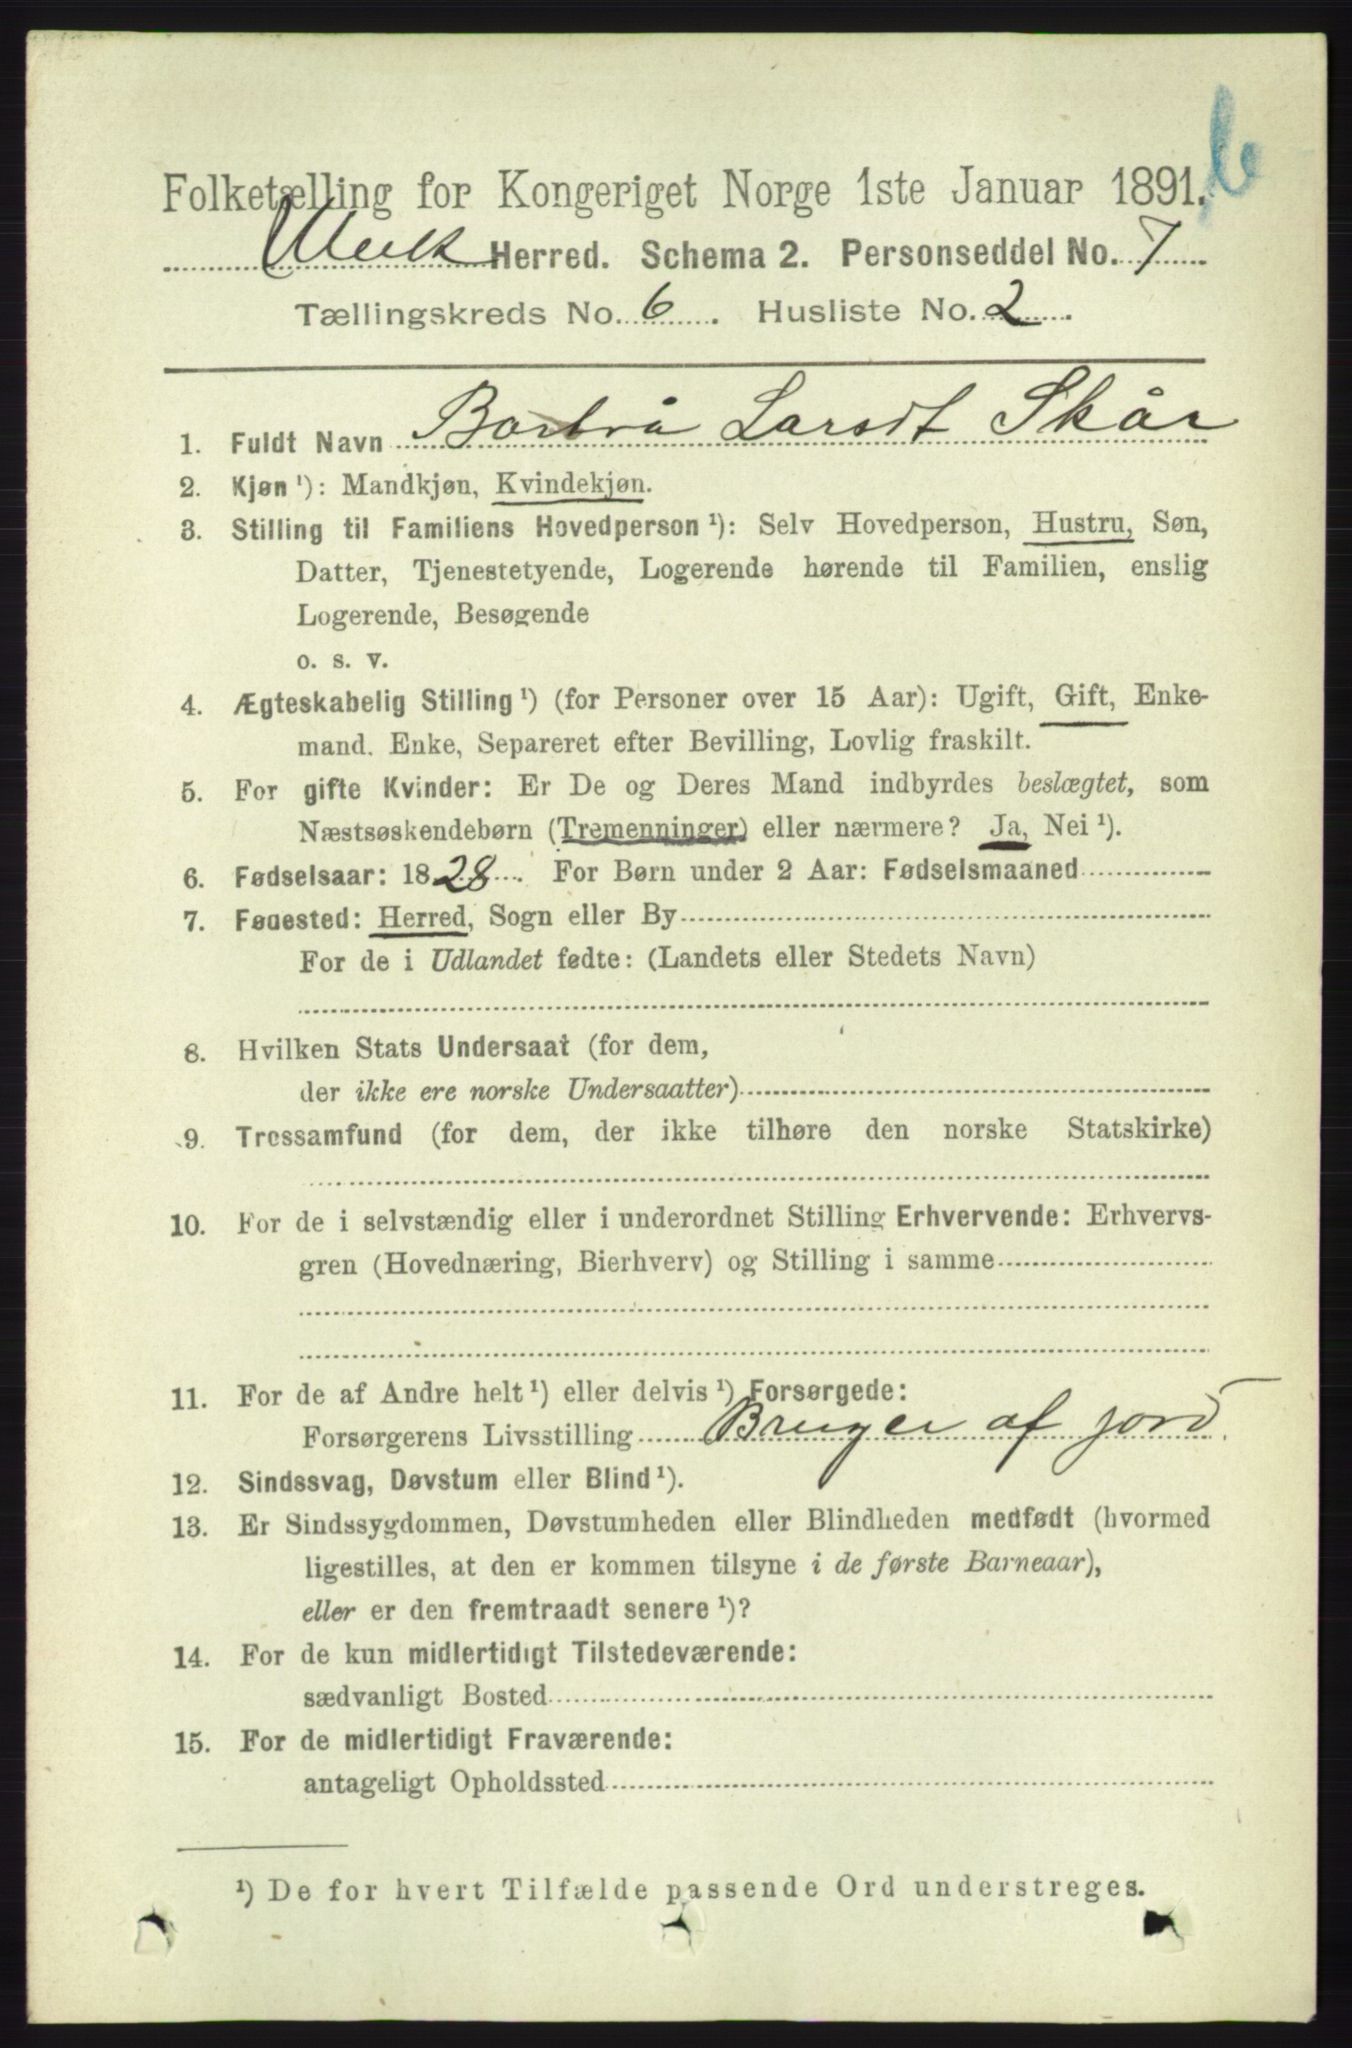 6
Folketælling for Kongeriget Norge 1ste Januar 1891.
Ulvik Herred. Schema 2. Personseddel No. 7
Tællingskreds No. 6. Husliste No. 2.
1. Fuldt Navn Barbrå Larsdt Skår
2. Kjøn ¹): Mandkjøn, Kvindekjøn.
3. Stilling til Familiens Hovedperson ¹): Selv Hovedperson, Hustru, Søn,
Datter, Tjenestetyende, Logerende hørende til Familien, enslig
Logerende, Besøgende
o. s. v.
4. Ægteskabelig Stilling ¹) (for Personer over 15 Aar): Ugift, Gift, Enke-
mand. Enke, Separeret efter Bevilling, Lovlig fraskilt.
5. For gifte Kvinder: Er De og Deres Mand indbyrdes beslægtet, som
Næstsøskendebørn (Tremenninger) eller nærmere? Ja, Nei ¹).
6. Fødselsaar: 1828. For Børn under 2 Aar: Fødselsmaaned
7. Fødested: Herred, Sogn eller By
For de i Udlandet fødte: (Landets eller Stedets Navn)
8. Hvilken Stats Undersaat (for dem,
der ikke ere norske Undersaatter)
9. Trossamfund (for dem, der ikke tilhøre den norske Statskirke)
10. For de i selvstændig eller i underordnet Stilling Erhvervende: Erhvervs-
gren (Hovednæring, Bierhverv) og Stilling i samme
11. For de af Andre helt ¹) eller delvis ¹) Forsørgede:
Forsørgerens Livsstilling Bruger af jord.
12. Sindssvag, Døvstum eller Blind ¹).
13. Er Sindssygdommen, Døvstumheden eller Blindheden medfødt (hvormed
ligestilles, at den er kommen tilsyne i de første Barneaar),
eller er den fremtraadt senere ¹)?
14. For de kun midlertidigt Tilstedeværende:
sædvanligt Bosted
15. For de midlertidigt Fraværende:
antageligt Opholdssted
¹) De for hvert Tilfælde passende Ord understreges.